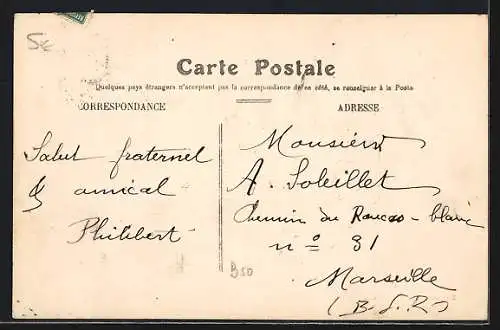 5e
Carte Postale
Quelques pays étrangers n'acceptent pas la correspondance de ce côté, se renseigner à la Poste
CORRESPONDANCE
ADRESSE
Salut fraternel
& amical
Philibert
Monsieur
A. Soleillet
Chemin du Roucas-blanc
n° 31
Marseille
(B-d-R)
B50